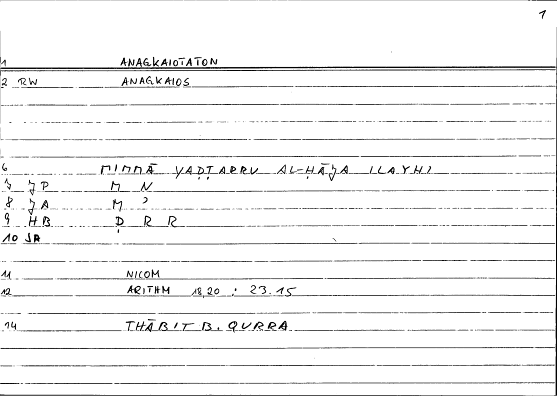 1
1 ANAGKAIOTATON
2 RW ANAGKAIOS
6 MIMMĀ YAḌṬARRU AL-ḤĀǦA ILAYHI
7 ǦP M N
8 ǦA M ʾ
9 HB Ḍ R R
10 SA
11 NICOM
12 ARITHM 18,20 : 23.15
14 THĀBIT B. QURRA